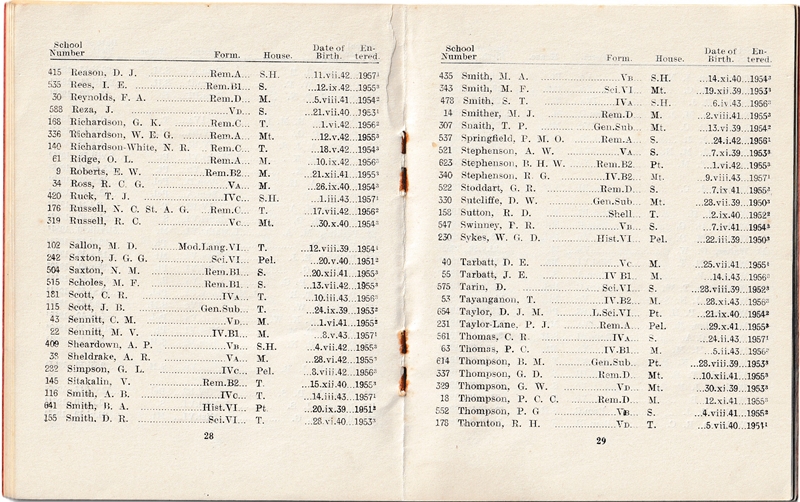 School
Number Form. House. Date of Birth. En-tered.
415 Reason, D. J. ...Rem.A... S.H. ...11.vii.42...1957¹
535 Rees, I. E. ...Rem.B1... S. ...12.ix.42...1955³
30 Reynolds, F. A. ...Rem.D... M. ...5.viii.41...1954²
588 Reza, J. ...VD... S. ...21.vii.40...1953¹
168 Richardson, G. K. ...Rem.C... T. ...1.vi.42...1956²
336 Richardson, W. E. G. ...Rem.A... Mt. ...12.v.42...1955³
140 Richardson-White, N. R. Rem.C... T. ...18.v.42...1954³
61 Ridge, O. L. ...Rem.A... M. ...10.ix.42...1956²
9 Roberts, E. W. ...Rem.B2... M. ...21.xii.41...1955³
34 Ross, R. C. G. ...VA... M. ...26.ix.40...1954³
420 Ruck, T. J. ...IVc... S.H. ...1.iii.43...1957¹
176 Russell, N. C. St. A. G. ...Rem.C... T. ...17.vii.42...1956²
319 Russell, R. C. ...Vc... Mt. ...30.x.40...1954³
102 Sallon, M. D. ...Mod.Lang.VI... T. ...12.viii.39...1954¹
242 Saxton, J. G. G. ...Sci.VI... Pel. ...20.v.40...1951²
504 Saxton, N. M. ...Rem.B1... S. ...20.xii.41...1955³
515 Scholes, M. F. ...Rem.B1... S. ...13.vii.42...1955³
181 Scott, C. R. ...IVA... T. ...10.iii.43...1956³
115 Scott, J. B. ...Gen.Sub... T. ...24.ix.39...1953²
43 Sennitt, C. M. ...VD... M. ...1.vi.41...1955²
22 Sennitt, M. V. ...IV.B1... M. ...8.v.43...1957¹
409 Sheardown, A. P. ...VB... S.H. ...4.vii.42...1955³
38 Sheldrake, A. R. ...VA... M. ...28.vi.42...1955³
282 Simpson, G. L. ...IVc... Pel. ...8.viii.42...1956³
145 Sitakalin, V. ...Rem.B2... T. ...15.xii.40...1955³
116 Smith, A. B. ...IVc... T. ...14.iii.43...1957¹
641 Smith, B. A. ...Hist.VI... Pt. ...20.ix.39...1951³
155 Smith, D. R. ...Sci.VI... T. ...28.vi.40...1953³
28
School
Number Form. House. Date of Birth. En-tered.
435 Smith, M. A. ...VB S.H. ...14.xi.40...1954³
343 Smith, M. F. ...Sci.VI Mt. ...19.xii.39...1953¹
478 Smith, S. T. ...IVA S.H. ...6.iv.43...1956³
14 Smither, M. J. ...Rem.D M. ...2.viii.41...1955³
307 Snaith, T. P. ...Gen.Sub... Mt. ...13.vi.39...1954²
537 Springfield, P. M. O. ...Rem.A S. ...24.i.42...1956¹
521 Stephenson, A. W. ...VA S. ...7.xi.39...1953³
623 Stephenson, B. H. W. ...Rem.B2 Pt. ...1.vi.42...1955³
340 Stephenson, R. G. ...IV.B2... Mt. ...9.viii.43...1957¹
522 Stoddart, G. R. ...Rem.D... S. ...7.ix 41...1955²
330 Sutcliffe, D. W. ...Gen.Sub... Mt. ...28.vii.39...1950³
158 Sutton, R. D. ...Shell T. ...2.ix.40...1952³
547 Swinney, F. R. ...VB... S. ...7.iv.41...1954³
230 Sykes, W. G. D. ...Hist.VI... Pel. ...22.iii.39...1950³
40 Tarbatt, D. E. ...Vc M. ...25.vii.41...1955¹
55 Tarbatt, J. E. ...IV B1... M. ...14.i.43...1956²
575 Tarin, D. ...Sci.VI... S. ...28.viii.39...1952³
53 Tayanganon, T. ...IV.B2... M. ...28.xi.43...1956²
654 Taylor, D. J. M. ...L.Sci.VI... Pt. ...21.ix.40...1954²
231 Taylor-Lane, P. J. ...Rem.A... Pel. ...29.x.41...1955³
561 Thomas, C. R. ...IVA... S. ...24.ii.43...1957¹
63 Thomas, P. C. ...IV.B1... M. ...5.ii.43...1956²
614 Thompson, B. M. ...Gen.Sub... Pt. ...28.viii.39...1953³
337 Thompson, G. D. ...Rem.D... Mt. ...10.xii.41...1955³
329 Thompson, G. W. ...VD... Mt. ...30.xi.39...1953³
18 Thompson, P. C. C. ...Rem.D... M. ...12.xi.41...1955³
552 Thompson, P. G ...VB... S. ...4.viii.41...1955²
178 Thornton, R. H. ...VD... T. ...5.vii.40...1951¹
29